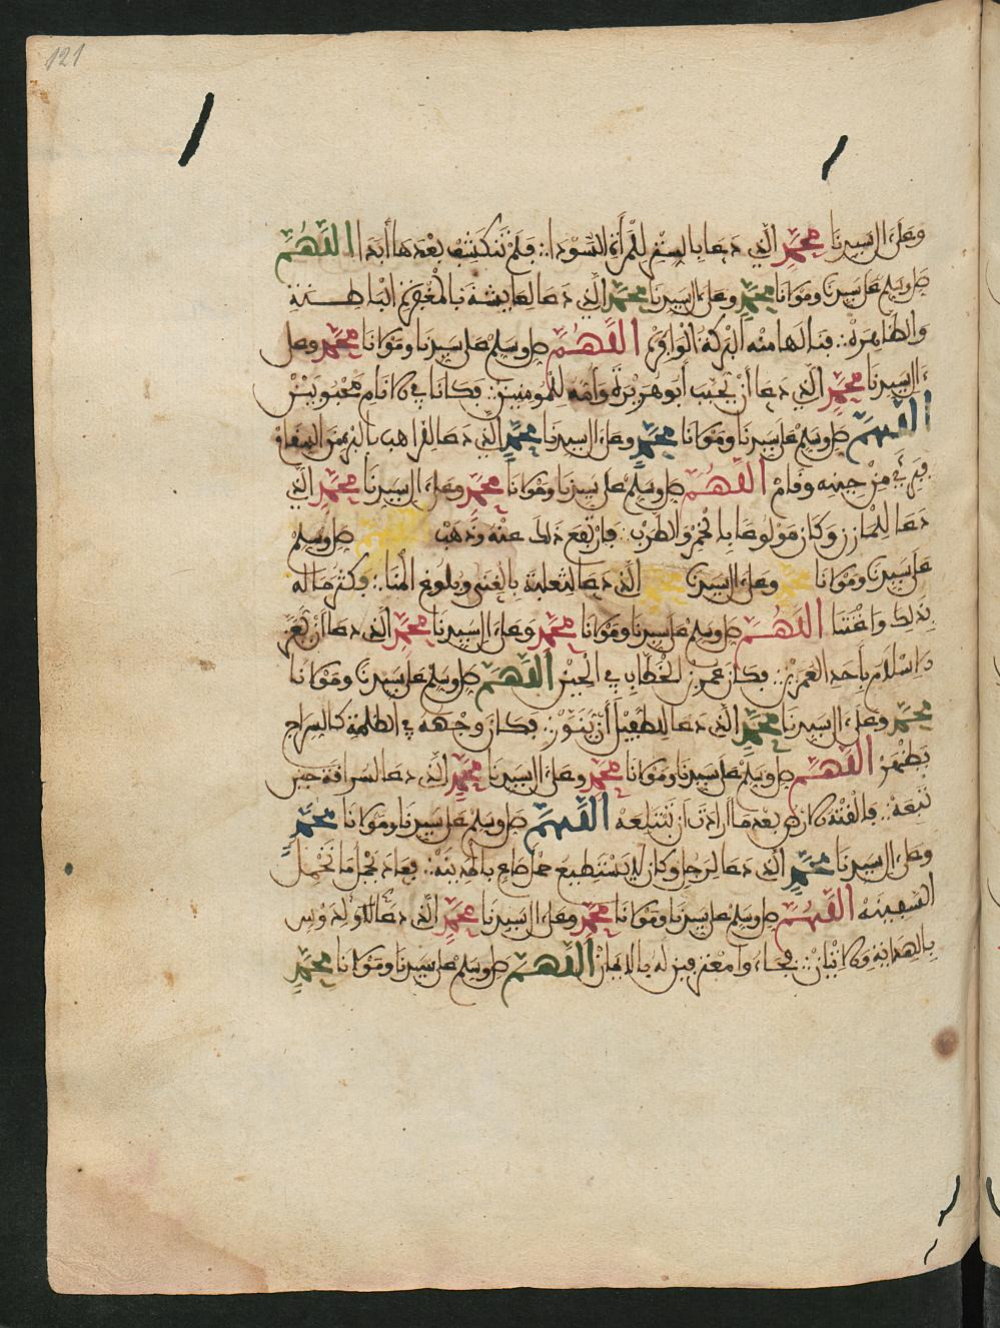 121
وعلى ءال سيدنا محمد الذي دعا بالستر للمرأة السودا ∴ فلم تنكشف بعدها أبدا اللهم
صل وسلم على سيدنا ومولانا محمد وعلى ءال سيدنا محمد الذي دعا لعايشة بالمغفرة الباطنة
والظاهرة ∴ فنالها منه البركة الوافرة اللهم صل وسلم على سيدنا ومولانا محمد وعلى
ءال سيدنا محمد الذي دعا أن يحبب أبو هريرة وأمه للمومنين ∴ فكانا في الانام محبوبين
اللهم صل وسلم على سيدنا ومولانا محمد وعلى ءال سيدنا محمد الذي دعا
من حينه وقام اللهم صل وسلم على سيدنا ومولانا محمد وعلى ءال سيدنا محمد الذي
دعا للمازن وكان مولوعا بالخمر والطرب ∴ فارتفع ذلك عنه وذهب اللهم صل وسلم
على سيدنا ومولانا محمد وعلى ءال سيدنا محمد الذي دعا لثعلبة بالغنى وبلوغ المنا ∴ فكثر ماله
بذلك واغتنا اللهم صل وسلم على سيدنا ومولانا محمد وعلى ءال سيدنا محمد الذي دعا أن يعز
الاسلام بأحد العمرين ∴ فكان عمر بن الخطاب في الحين اللهم صل وسلم على سيدنا ومولانا
محمد وعلى ءال سيدنا محمد الذي دعا للطفيل أن يتنور ∴ فكان وجهه في الظلمة كالسراج
يظهر اللهم صل وسلم على سيدنا ومولانا محمد وعلى ءال سيدنا محمد الذي دعا لسراقة حين
تبعه ∴ فالقته الارض بعد ما أرادت أن تبتلعه اللهم صل وسلم على سيدنا ومولانا محمد
وعلى ءال سيدنا محمد الذي دعا لرجل وكان لا يستطيع حمل صاع بالمدينة ∴ فعاد يحمل ما تحمل
السفينة اللهم صل وسلم على سيدنا ومولانا محمد وعلى ءال سيدنا محمد الذي دعا لاولاد دوس
بالهداية والاتيان ∴ اللهم صل وسلم على سيدنا ومولانا محمد